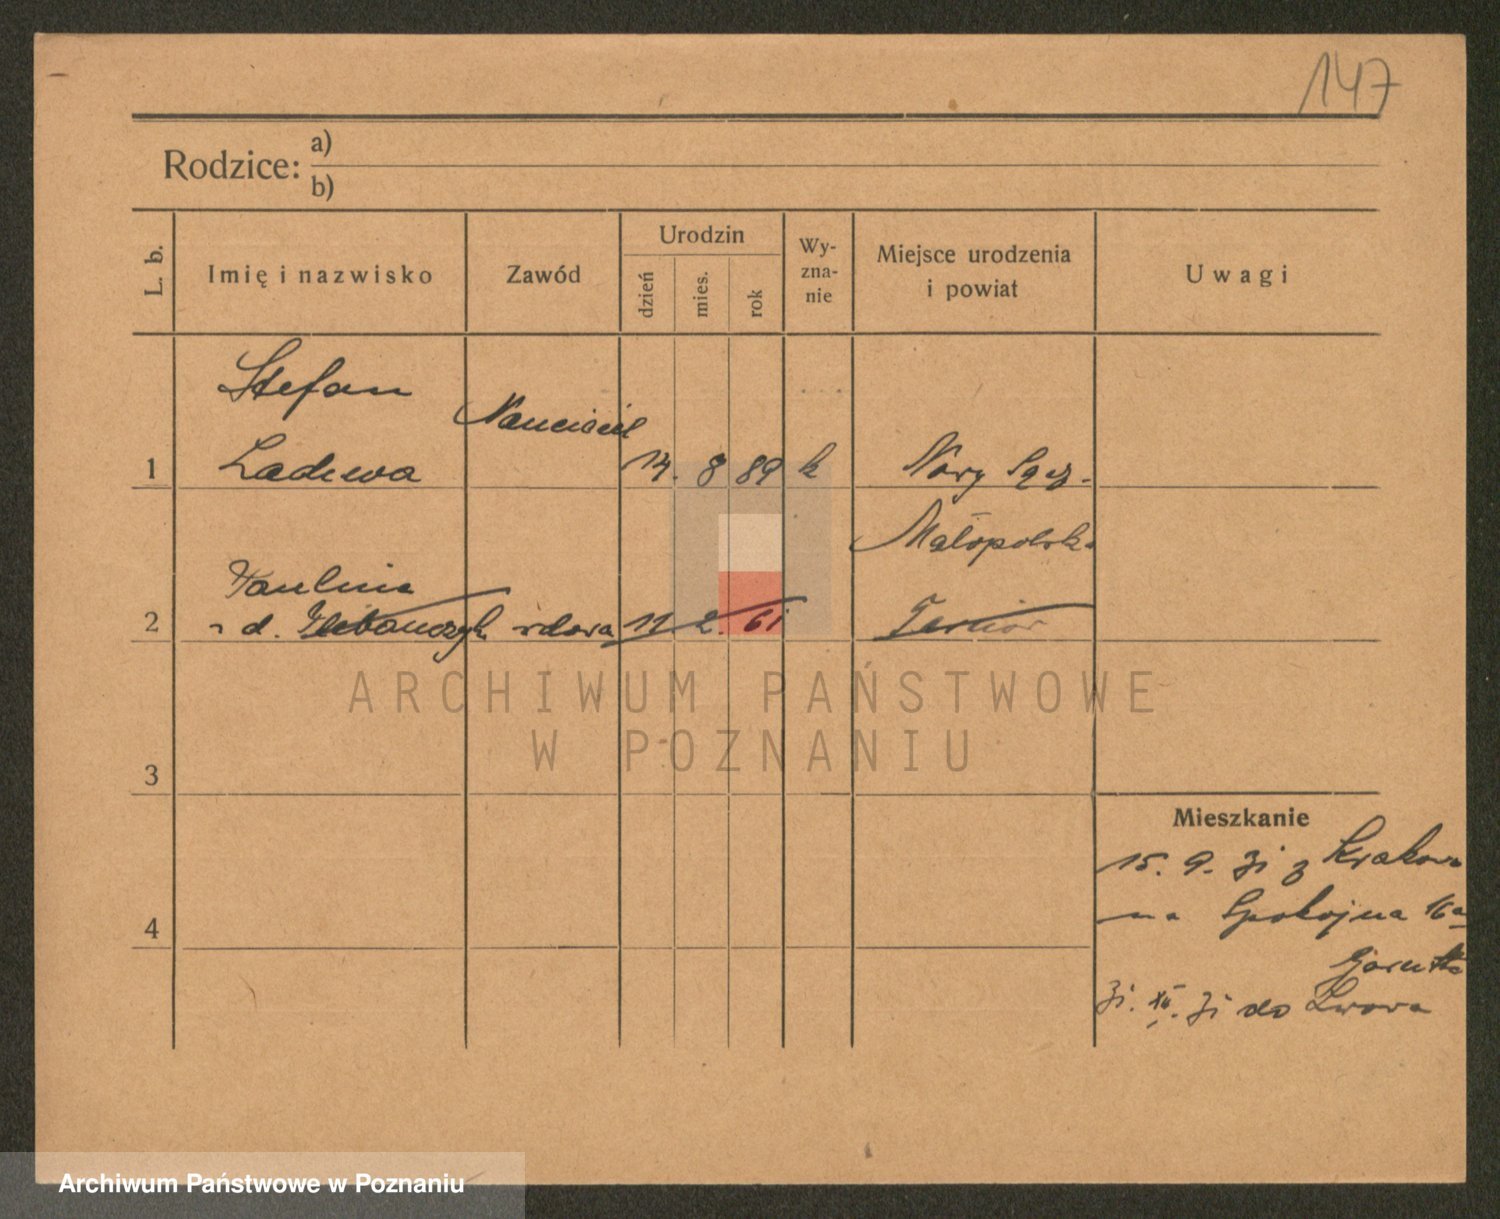 147
Rodzice: a)
b)
L. b.
Imię i nazwisko
Zawód
Urodzin
dzień
mies.
rok
Wy-
zna-
nie
Miejsce urodzenia
i powiat
Uwagi
Stefan
Nauciciel
1 Ladewa 14. 8 89 k Nowy Sącz -
Małopolska
Paulina
2 z d. wdowa 11. 2. 61
3
4
Mieszkanie
15. 9. 31 z Krakowa
na Spokojna 16a
31. XII. 31 do Lwowa
ARCHIWUM PAŃSTWOWE
W POZNANIU
Archiwum Państwowe w Poznaniu